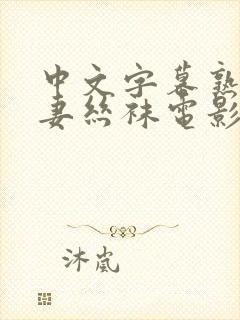 中文字幕熟
妻丝袜电影
沐岚